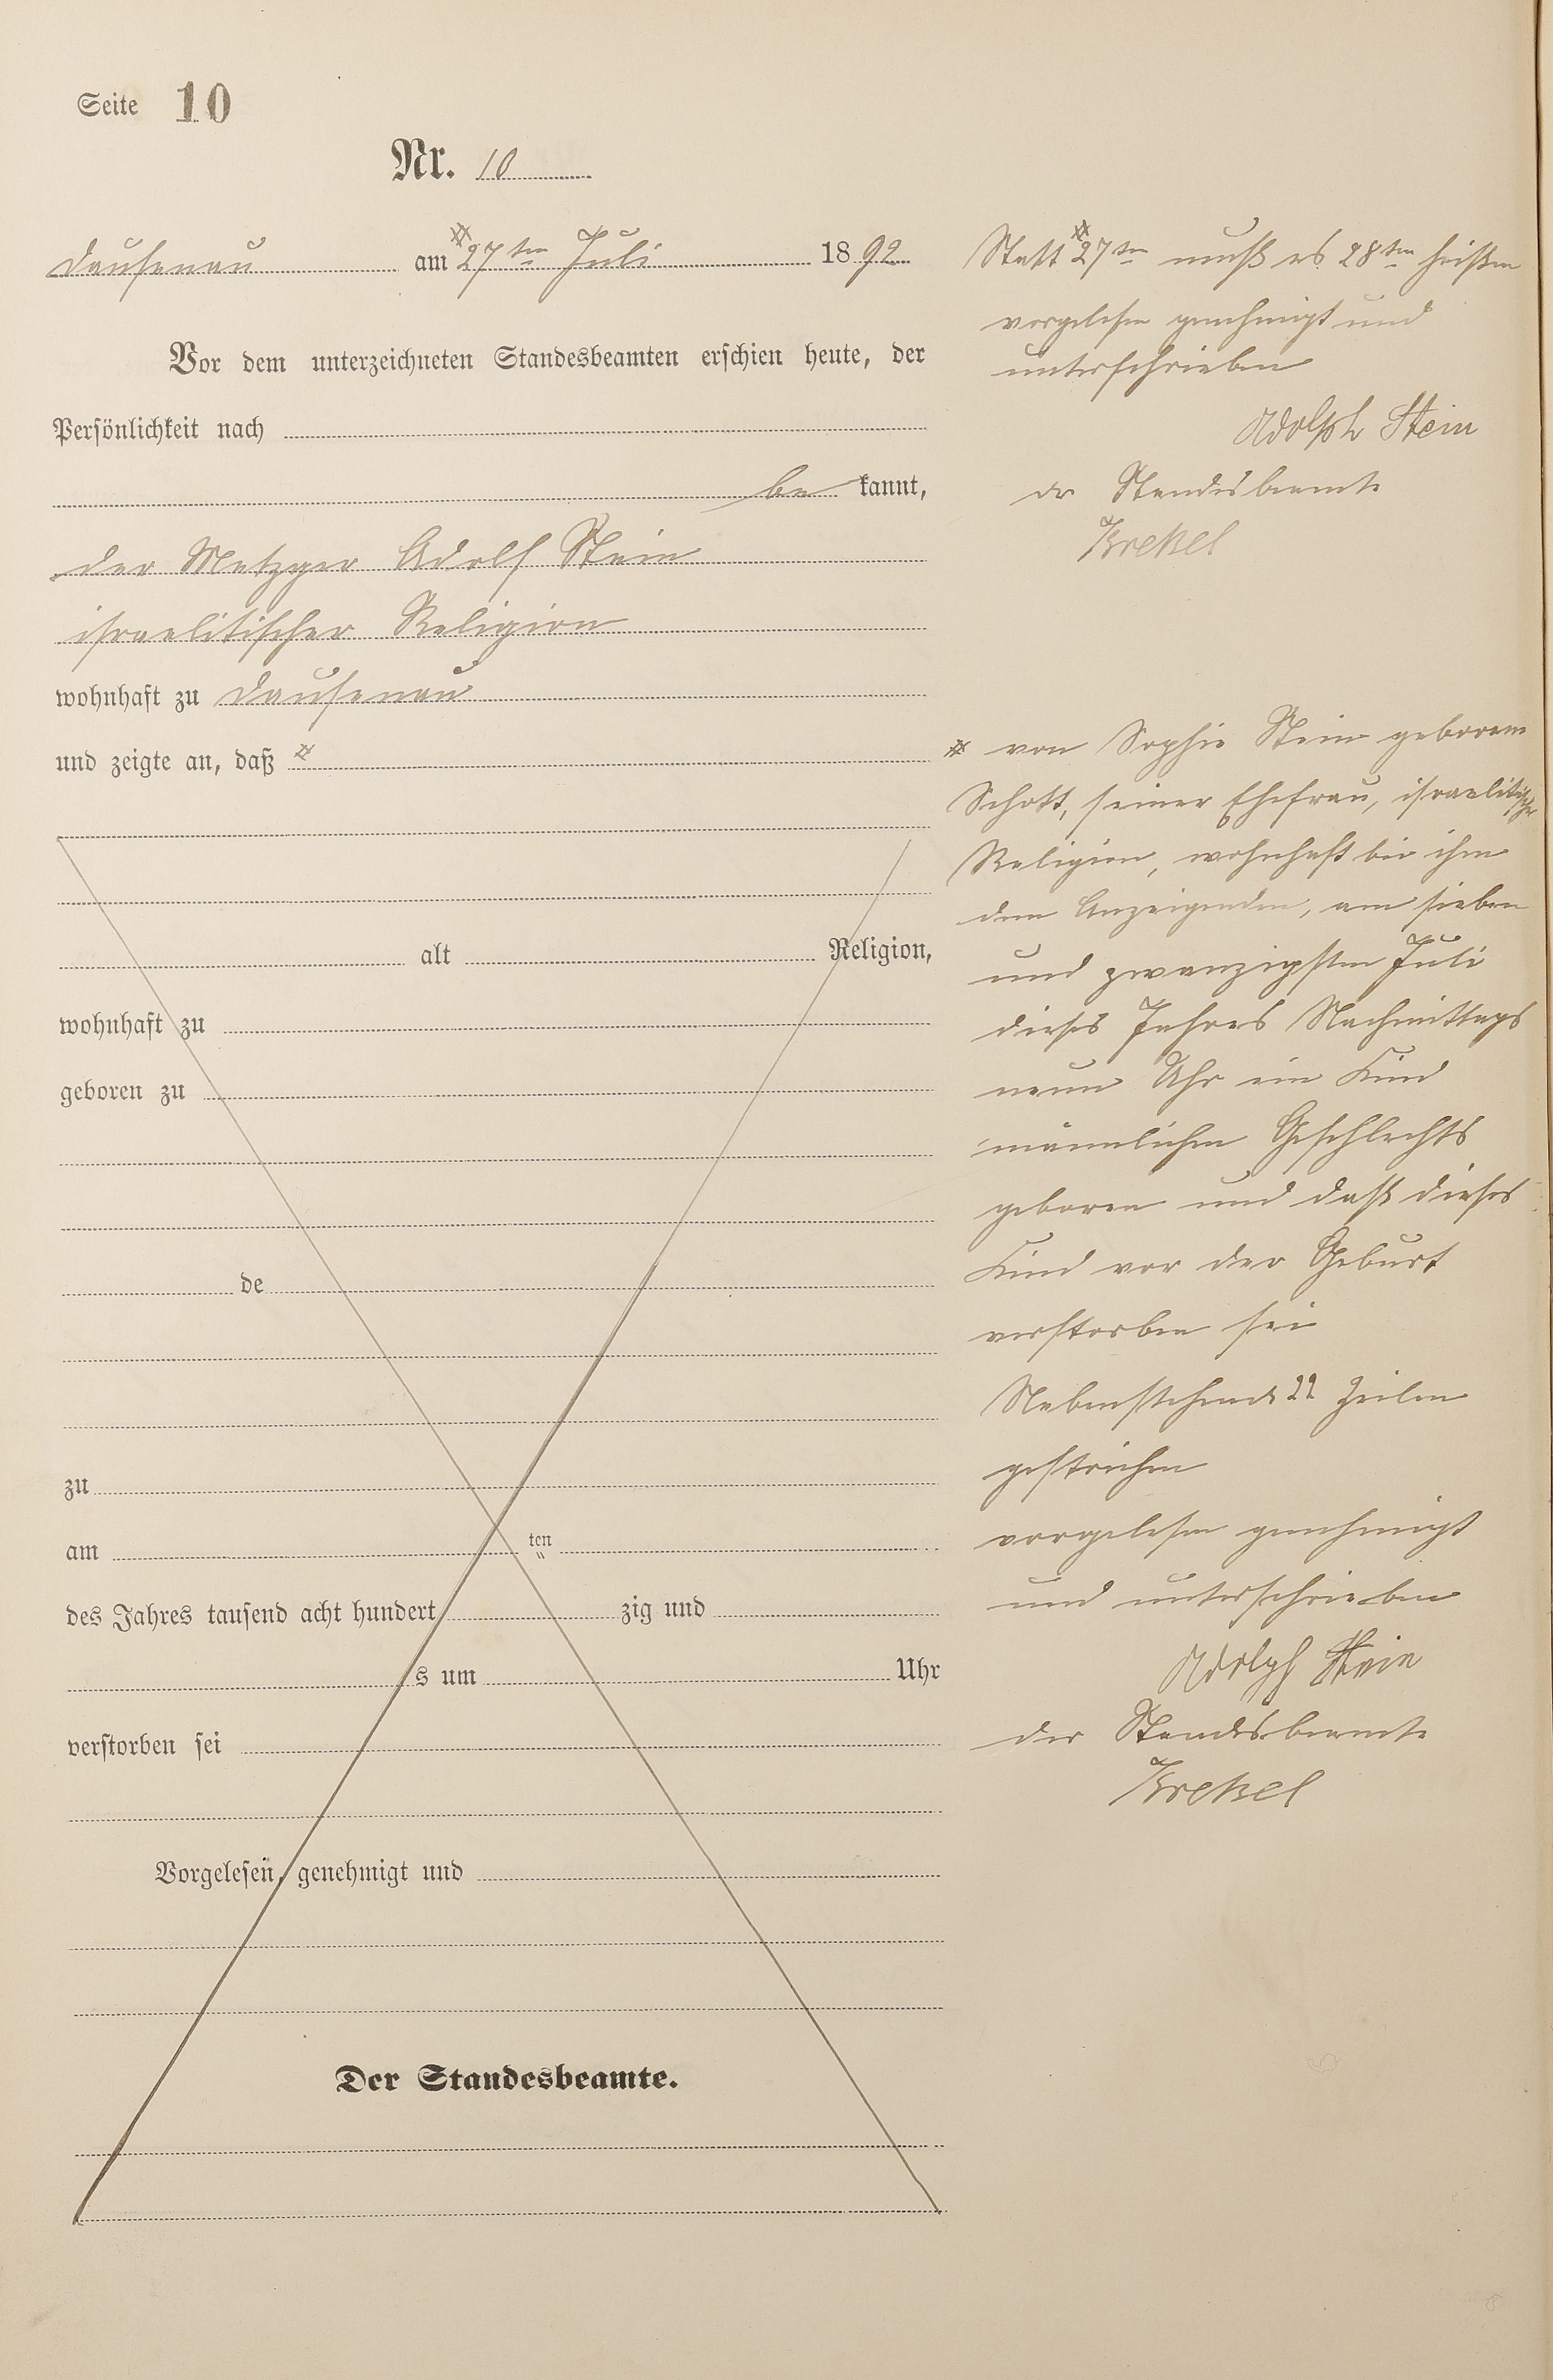 Seite 10
Nr. 10
Dausenau am # 27ten Juli 1892
Vor dem unterzeichneten Standesbeamten erschien heute, der
Persönlichkeit nach
be kannt,
der Metzger Adolf Stein
israelitischer Religion
wohnhaft zu Dausenau
und zeigte an, daß #
alt Religion,
wohnhaft zu
geboren zu
de
zu
am ten
des Jahres tausend acht hundert zig und
s um Uhr
verstorben sei
Vorgelesen, genehmigt und
Der Standesbeamte.
Statt # 27ten muß es 28ten heißen
vorgelesen genehmigt und
unterschrieben
Adolph Stein
der Standesbeamte
Krekel
# von Sophie Stein geborene
Schott, seiner Ehefrau, israelitischer
Religion, wohnhaft bei ihm
dem Anzeigenden, am sieben
und zwanzigsten Juli
dieses Jahres Nachmittags
neun Uhr ein Kind
männlichen Geschlechts
geboren und daß dieses
Kind vor der Geburt
verstorben sei
Nebenstehende 22 Zeilen
gestrichen
vorgelesen genehmigt
und unterschrieben
Adolph Stein
der Standesbeamte
Krekel